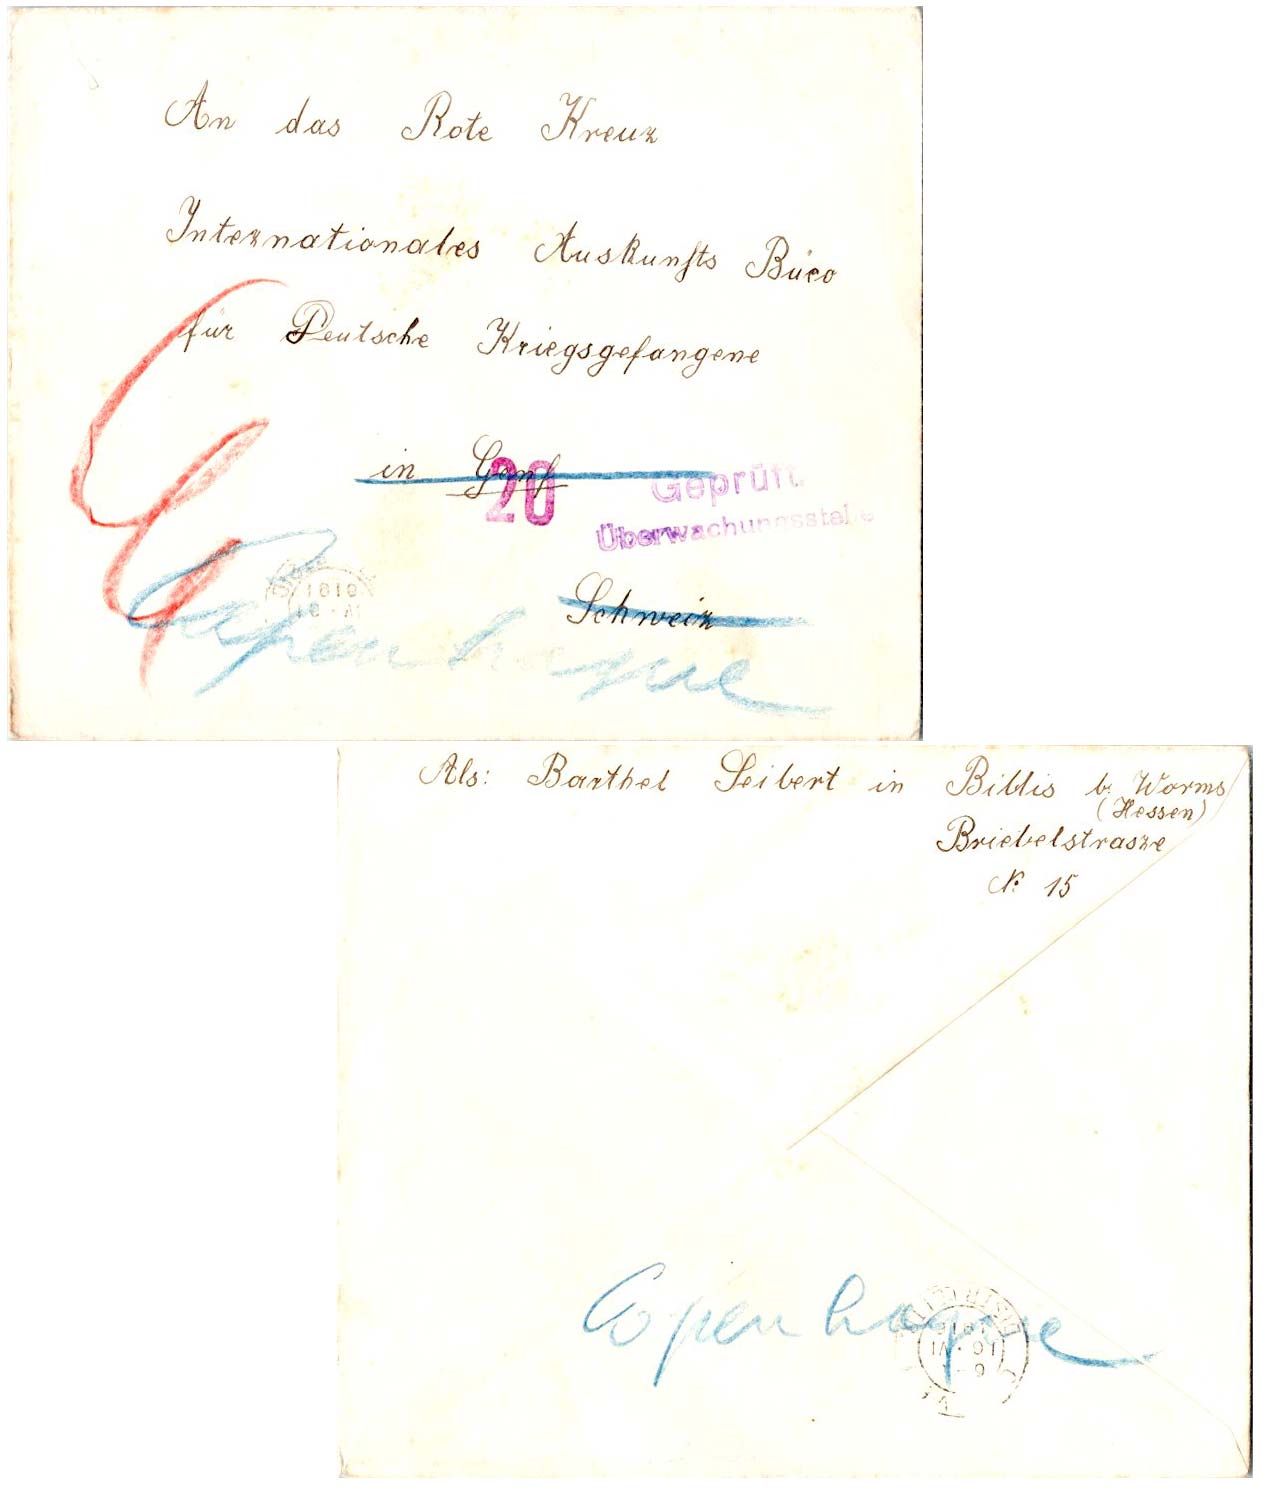 An das Rote Kreuz
Internationales Auskunfts Büro
für Deutsche Kriegsgefangene
in Genf
20
Geprüft
Überwachungsstelle
Schweiz
Copenhague
Als: Barthel Seibert in Biblis b. Worms
(Hessen)
Briebelstrasze
N: 15
Copenhague